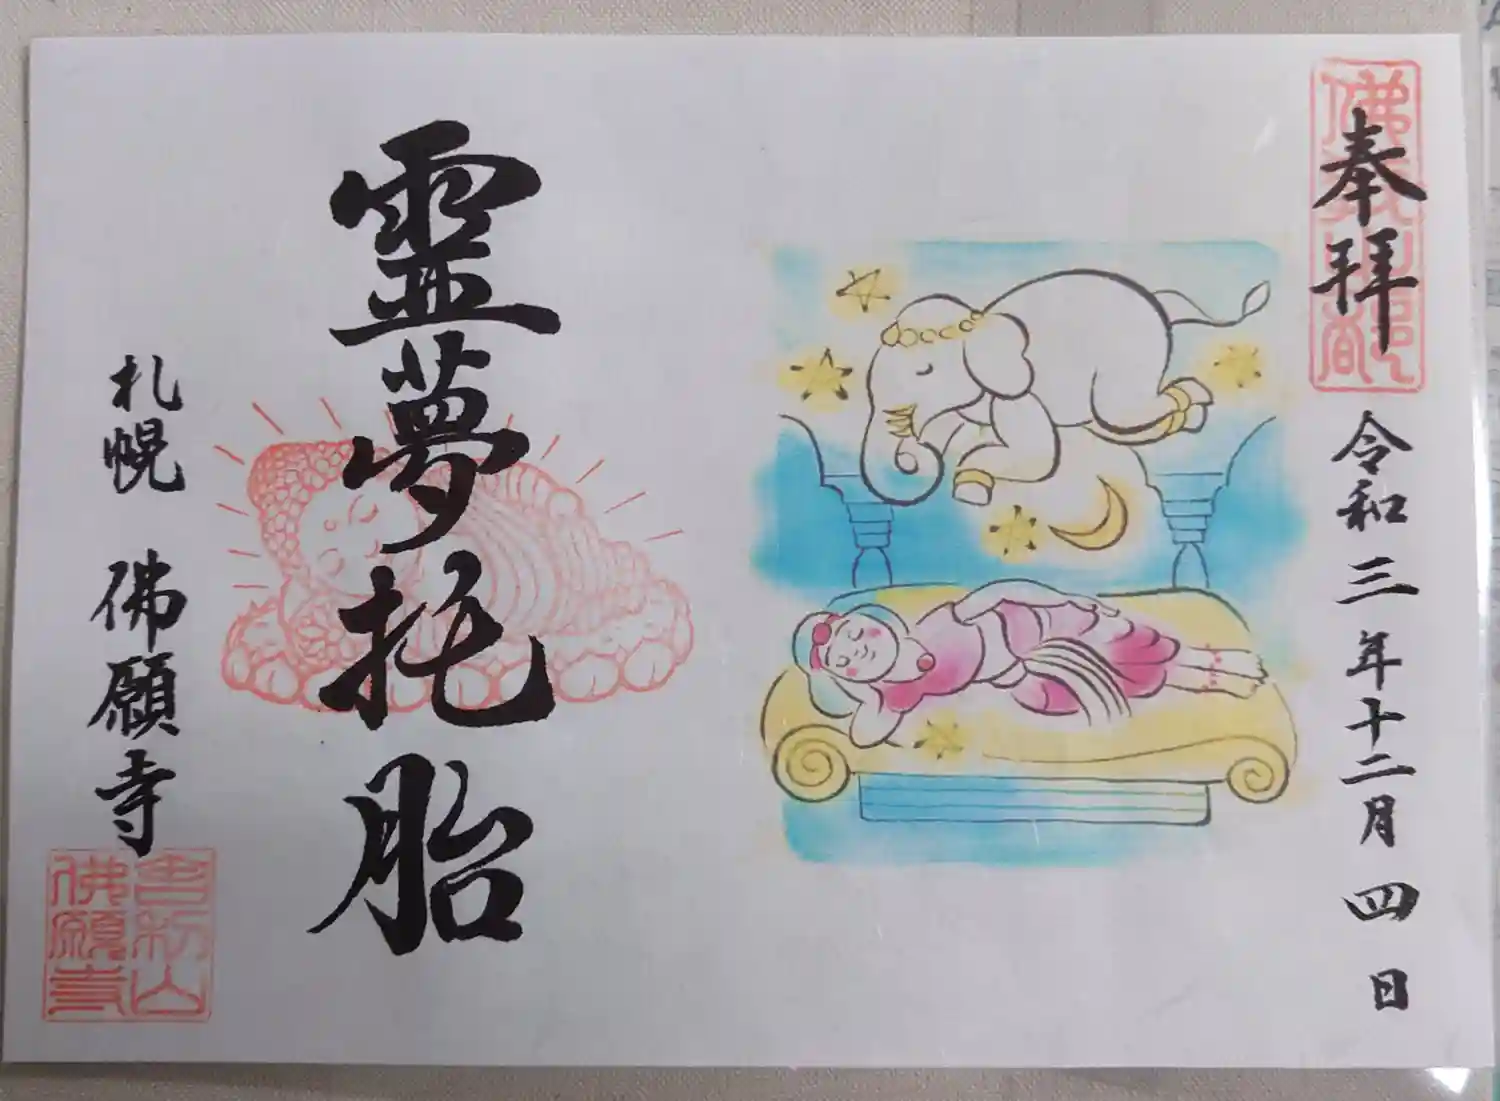 奉拝
令和三年十二月四日
靈夢托胎
札幌 佛願寺
舎利山
佛願寺